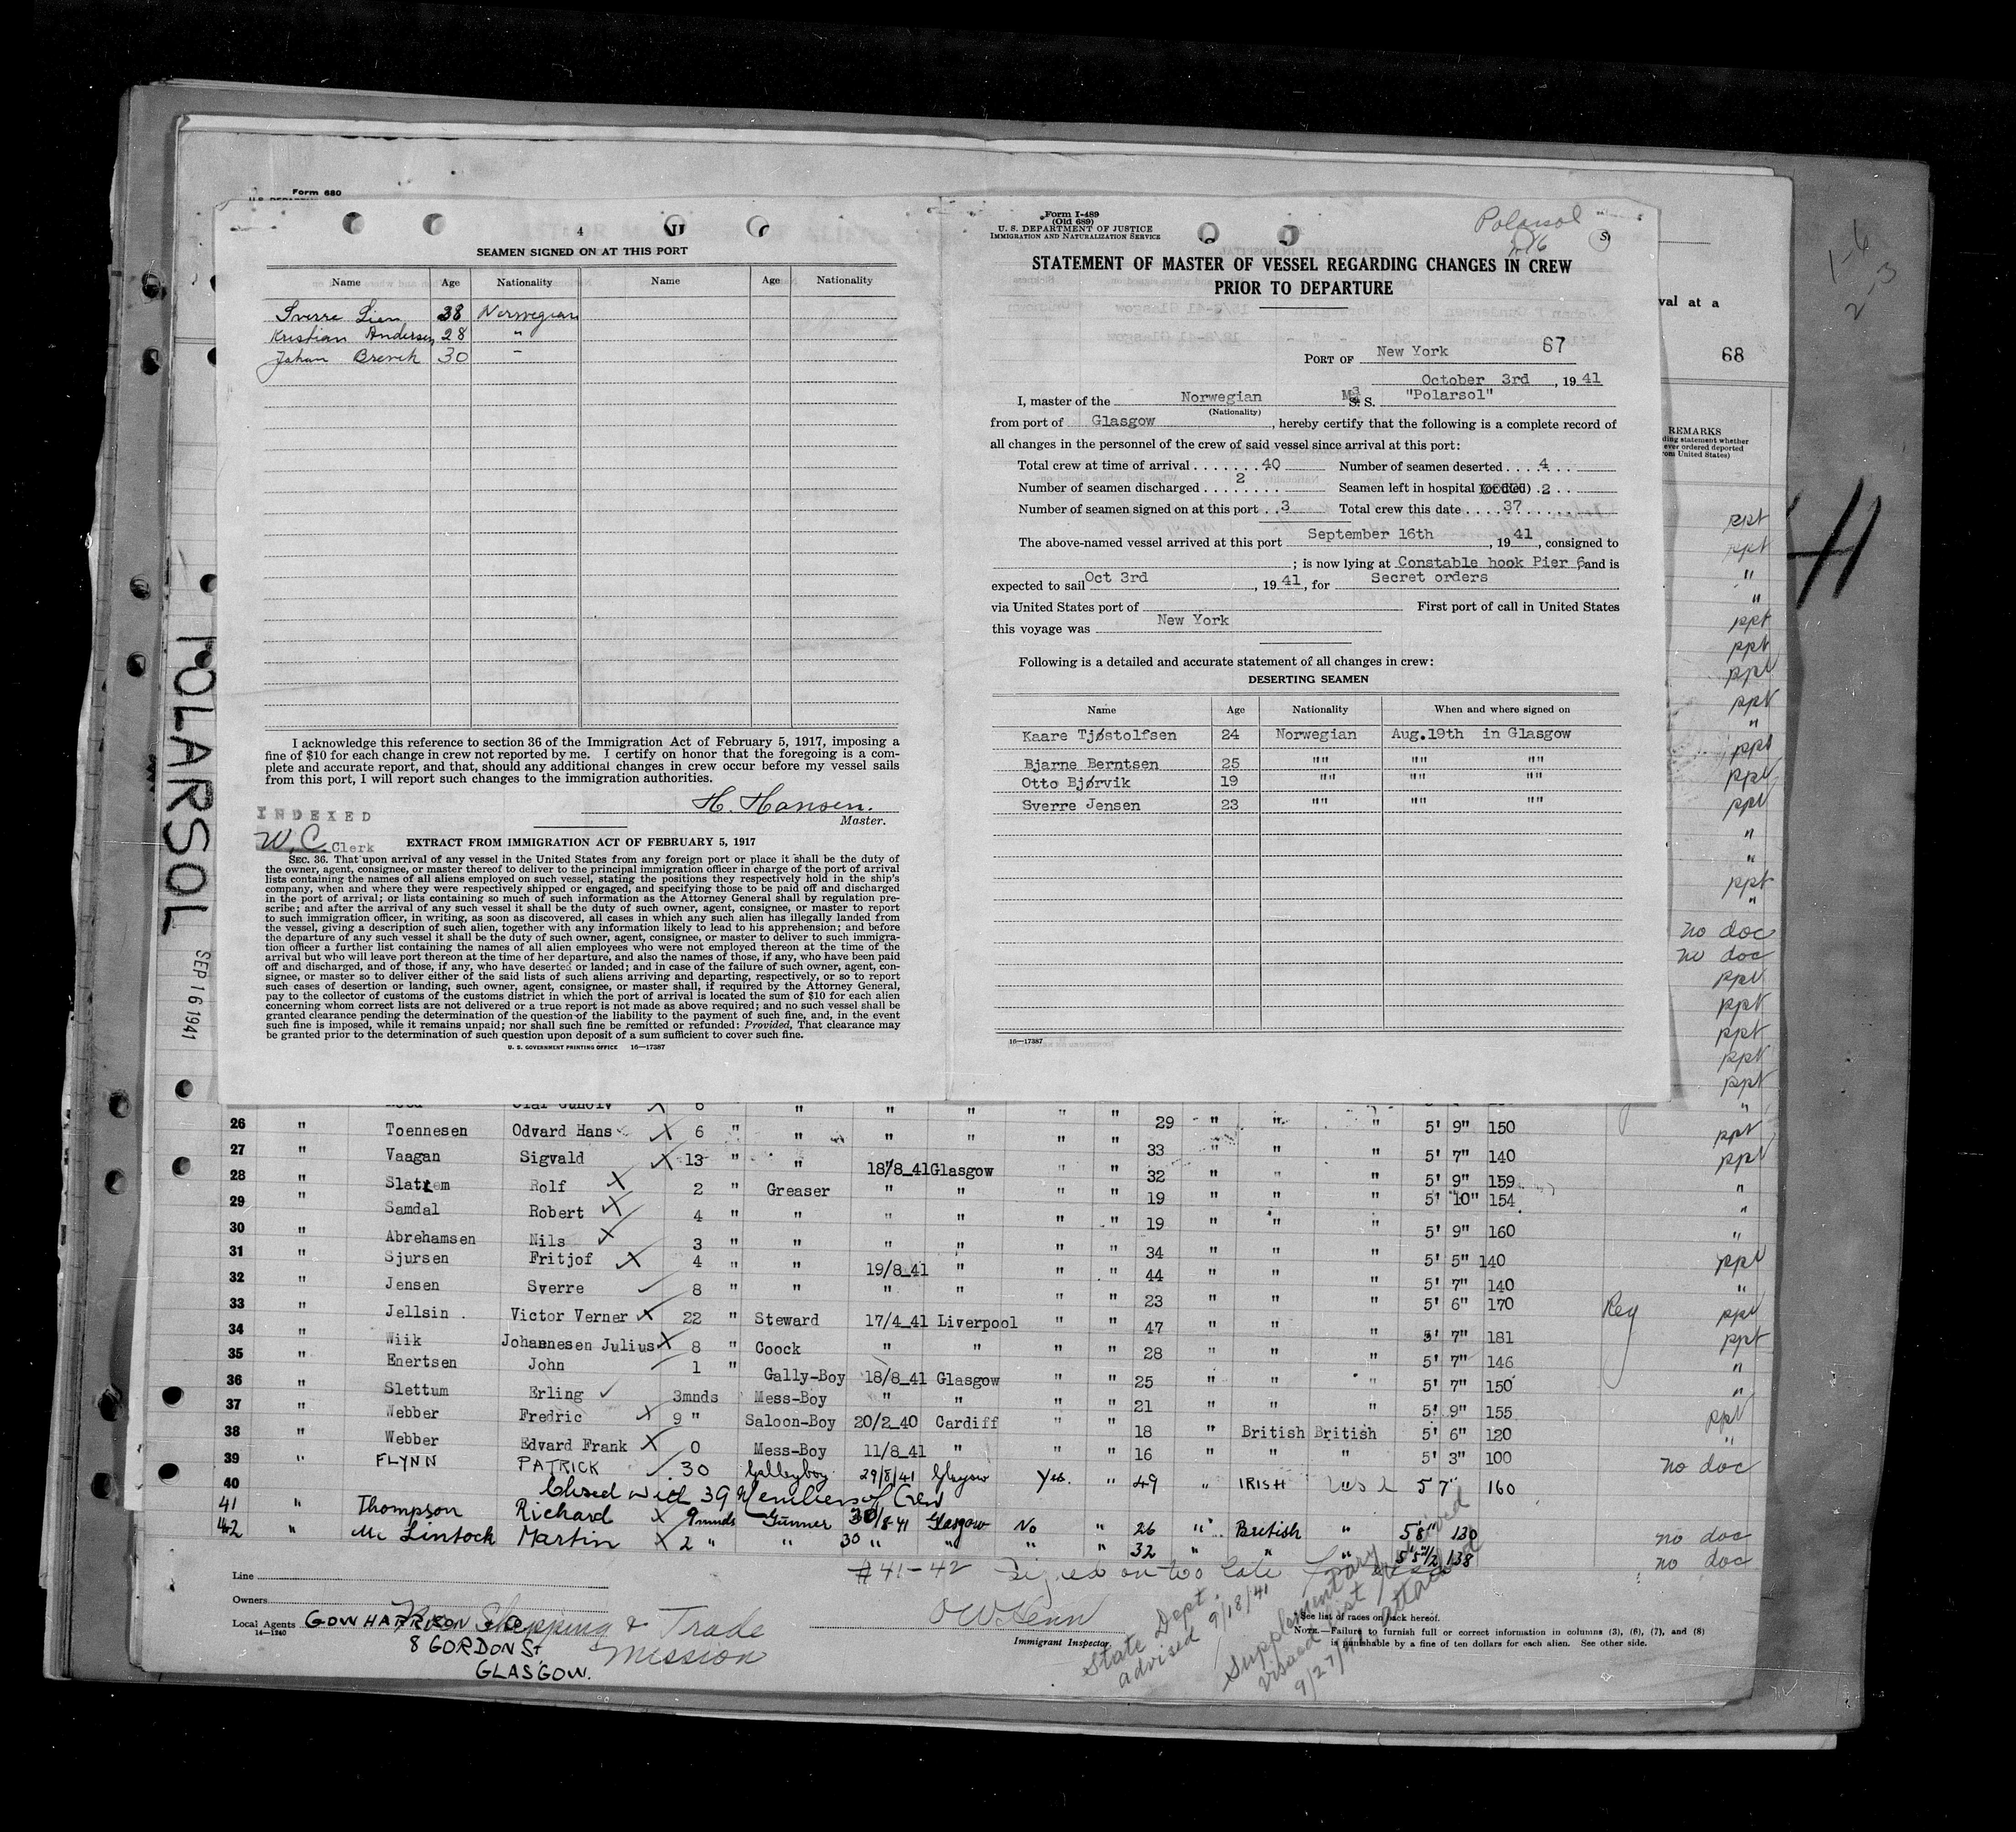 Form 680
4
SEAMEN SIGNED ON AT THIS PORT
Name Age Nationality Name Age Nationality
Sverre Lien 38 Norwegian
Kristian Andersen 28 "
Johan Brevik 30 "
I acknowledge this reference to section 36 of the Immigration Act of February 5, 1917, imposing a
fine of $10 for each change in crew not reported by me. I certify on honor that the foregoing is a com-
plete and accurate report, and that, should any additional changes in crew occur before my vessel sails
from this port, I will report such changes to the immigration authorities.
H. Hansen.
Master.
INDEXED
W.C. Clerk
EXTRACT FROM IMMIGRATION ACT OF FEBRUARY 5, 1917
SEC. 36. That upon arrival of any vessel in the United States from any foreign port or place it shall be the duty of
the owner, agent, consignee, or master thereof to deliver to the principal immigration officer in charge of the port of arrival
lists containing the names of all aliens employed on such vessel, stating the positions they respectively hold in the ship's
company, when and where they were respectively shipped or engaged, and specifying those to be paid off and discharged
in the port of arrival; or lists containing so much of such information as the Attorney General shall by regulation pre-
scribe; and after the arrival of any such vessel it shall be the duty of such owner, agent, consignee, or master to report
to such immigration officer, in writing, as soon as discovered, all cases in which any such alien has illegally landed from
the vessel, giving a description of such alien, together with any information likely to lead to his apprehension; and before
the departure of any such vessel it shall be the duty of such owner, agent, consignee, or master to deliver to such immigra-
tion officer a further list containing the names of all alien employees who were not employed thereon at the time of the
arrival but who will leave port thereon at the time of her departure, and also the names of those, if any, who have been paid
off and discharged, and of those, if any, who have deserted or landed; and in case of the failure of such owner, agent, con-
signee, or master so to deliver either of the said lists of such aliens arriving and departing, respectively, or so to report
such cases of desertion or landing, such owner, agent, consignee, or master shall, if required by the Attorney General,
pay to the collector of customs of the customs district in which the port of arrival is located the sum of $10 for each alien
concerning whom correct lists are not delivered or a true report is not made as above required; and no such vessel shall be
granted clearance pending the determination of the question of the liability to the payment of such fine, and, in the event
such fine is imposed, while it remains unpaid; nor shall such fine be remitted or refunded: Provided, That clearance may
be granted prior to the determination of such question upon deposit of a sum sufficient to cover such fine.
U. S. GOVERNMENT PRINTING OFFICE 16—17387
Form I-489
(Old 689)
U. S. DEPARTMENT OF JUSTICE
IMMIGRATION AND NATURALIZATION SERVICE
Polarsol
STATEMENT OF MASTER OF VESSEL REGARDING CHANGES IN CREW
PRIOR TO DEPARTURE
PORT OF New York 67
October 3rd, 19 41
I, master of the Norwegian S. S. "Polarsol"
(Nationality)
from port of Glasgow, hereby certify that the following is a complete record of
all changes in the personnel of the crew of said vessel since arrival at this port:
Total crew at time of arrival 40 Number of seamen deserted 4
Number of seamen discharged 2 Seamen left in hospital (or died) 2
Number of seamen signed on at this port 3 Total crew this date 37
The above-named vessel arrived at this port September 16th, 19 41, consigned to
; is now lying at Constable hook Pier 6, and is
expected to sail Oct 3rd, 19 41, for Secret orders
via United States port of First port of call in United States
this voyage was New York
Following is a detailed and accurate statement of all changes in crew:
DESERTING SEAMEN
Name Age Nationality When and where signed on
Kaare Tjøstolfsen 24 Norwegian Aug.19th in Glasgow
Bjarne Berntsen 25 "" "" ""
Otto Bjørvik 19 "" "" ""
Sverre Jensen 23 "" "" ""
16—17387
val at a
68
REMARKS
ding statement whether
ever ordered deported
rom United States)
ppt
ppt
"
"
ppt
ppt
ppt
ppt
"
ppt
ppt
ppt
"
"
ppt
"
no doc
no doc
ppt
ppt
ppt
ppt
ppt
POLARSOL
SEP 16 1941
26 " Toennesen Odvard Hans 6 " " " " " " 29 " " " 5' 9" 150 ppt
27 " Vaagan Sigvald 13 " " 18/8_41 Glasgow " " 33 " " " 5' 7" 140 ppt
28 " Slattem Rolf 2 " Greaser " " " " 32 " " " 5' 9" 159 "
29 " Samdal Robert 4 " " " " " " 19 " " " 5' 10" 154 "
30 " Abrehamsen Nils 3 " " " " " " 19 " " " 5' 9" 160 "
31 " Sjursen Fritjof 4 " " 19/8_41 " " " 34 " " " 5' 5" 140 ppt
32 " Jensen Sverre 8 " " " " " " 44 " " " 5' 7" 140 "
33 " Jellsin Victor Verner 22 " Steward 17/4_41 Liverpool " " 23 " " " 5' 6" 170 Rey ppt
34 " Wiik Johannesen Julius 8 " Coock " " " " 47 " " " 5' 7" 181 ppt
35 " Enertsen John 1 " Gally-Boy 18/8_41 Glasgow " " 28 " " " 5' 7" 146 "
36 " Slettum Erling 3mnds Mess-Boy " " " " 25 " " " 5' 7" 150 "
37 " Webber Fredric 9 " Saloon-Boy 20/2_40 Cardiff " " 21 " " " 5' 9" 155 ppt
38 " Webber Edvard Frank 0 Mess-Boy 11/8_41 " " " 18 " British British 5' 6" 120 "
39 " FLYNN PATRICK 30 Galleyboy 29/8/41 Glasgow Yes. " 16 " " " 5' 3" 100 no doc
40 Closed with 39 Members of Crew 49 " IRISH 5 7" 160
41 " Thompson Richard 9 mnds Gunner 30/8-41 Glasgow No " 26 " British " 5'8" 130 no doc
42 " Mc Lintock Martin 2 " " 30 " " " " 32 " " " 5'5"1/2 138 no doc
#41-42 Signed on too late for visa
Line
Owners
Local Agents GOW HARRISON & CO
14—1240
8 GORDON St.
GLASGOW.
Nor. Shipping & Trade
Mission
Immigrant Inspector.
State Dept.
advised 9/18/41
Supplementary
visaed list received
9/27/41 attached
See list of races on back hereof.
NOTE.—Failure to furnish full or correct information in columns (3), (6), (7), and (8)
is punishable by a fine of ten dollars for each alien. See other side.